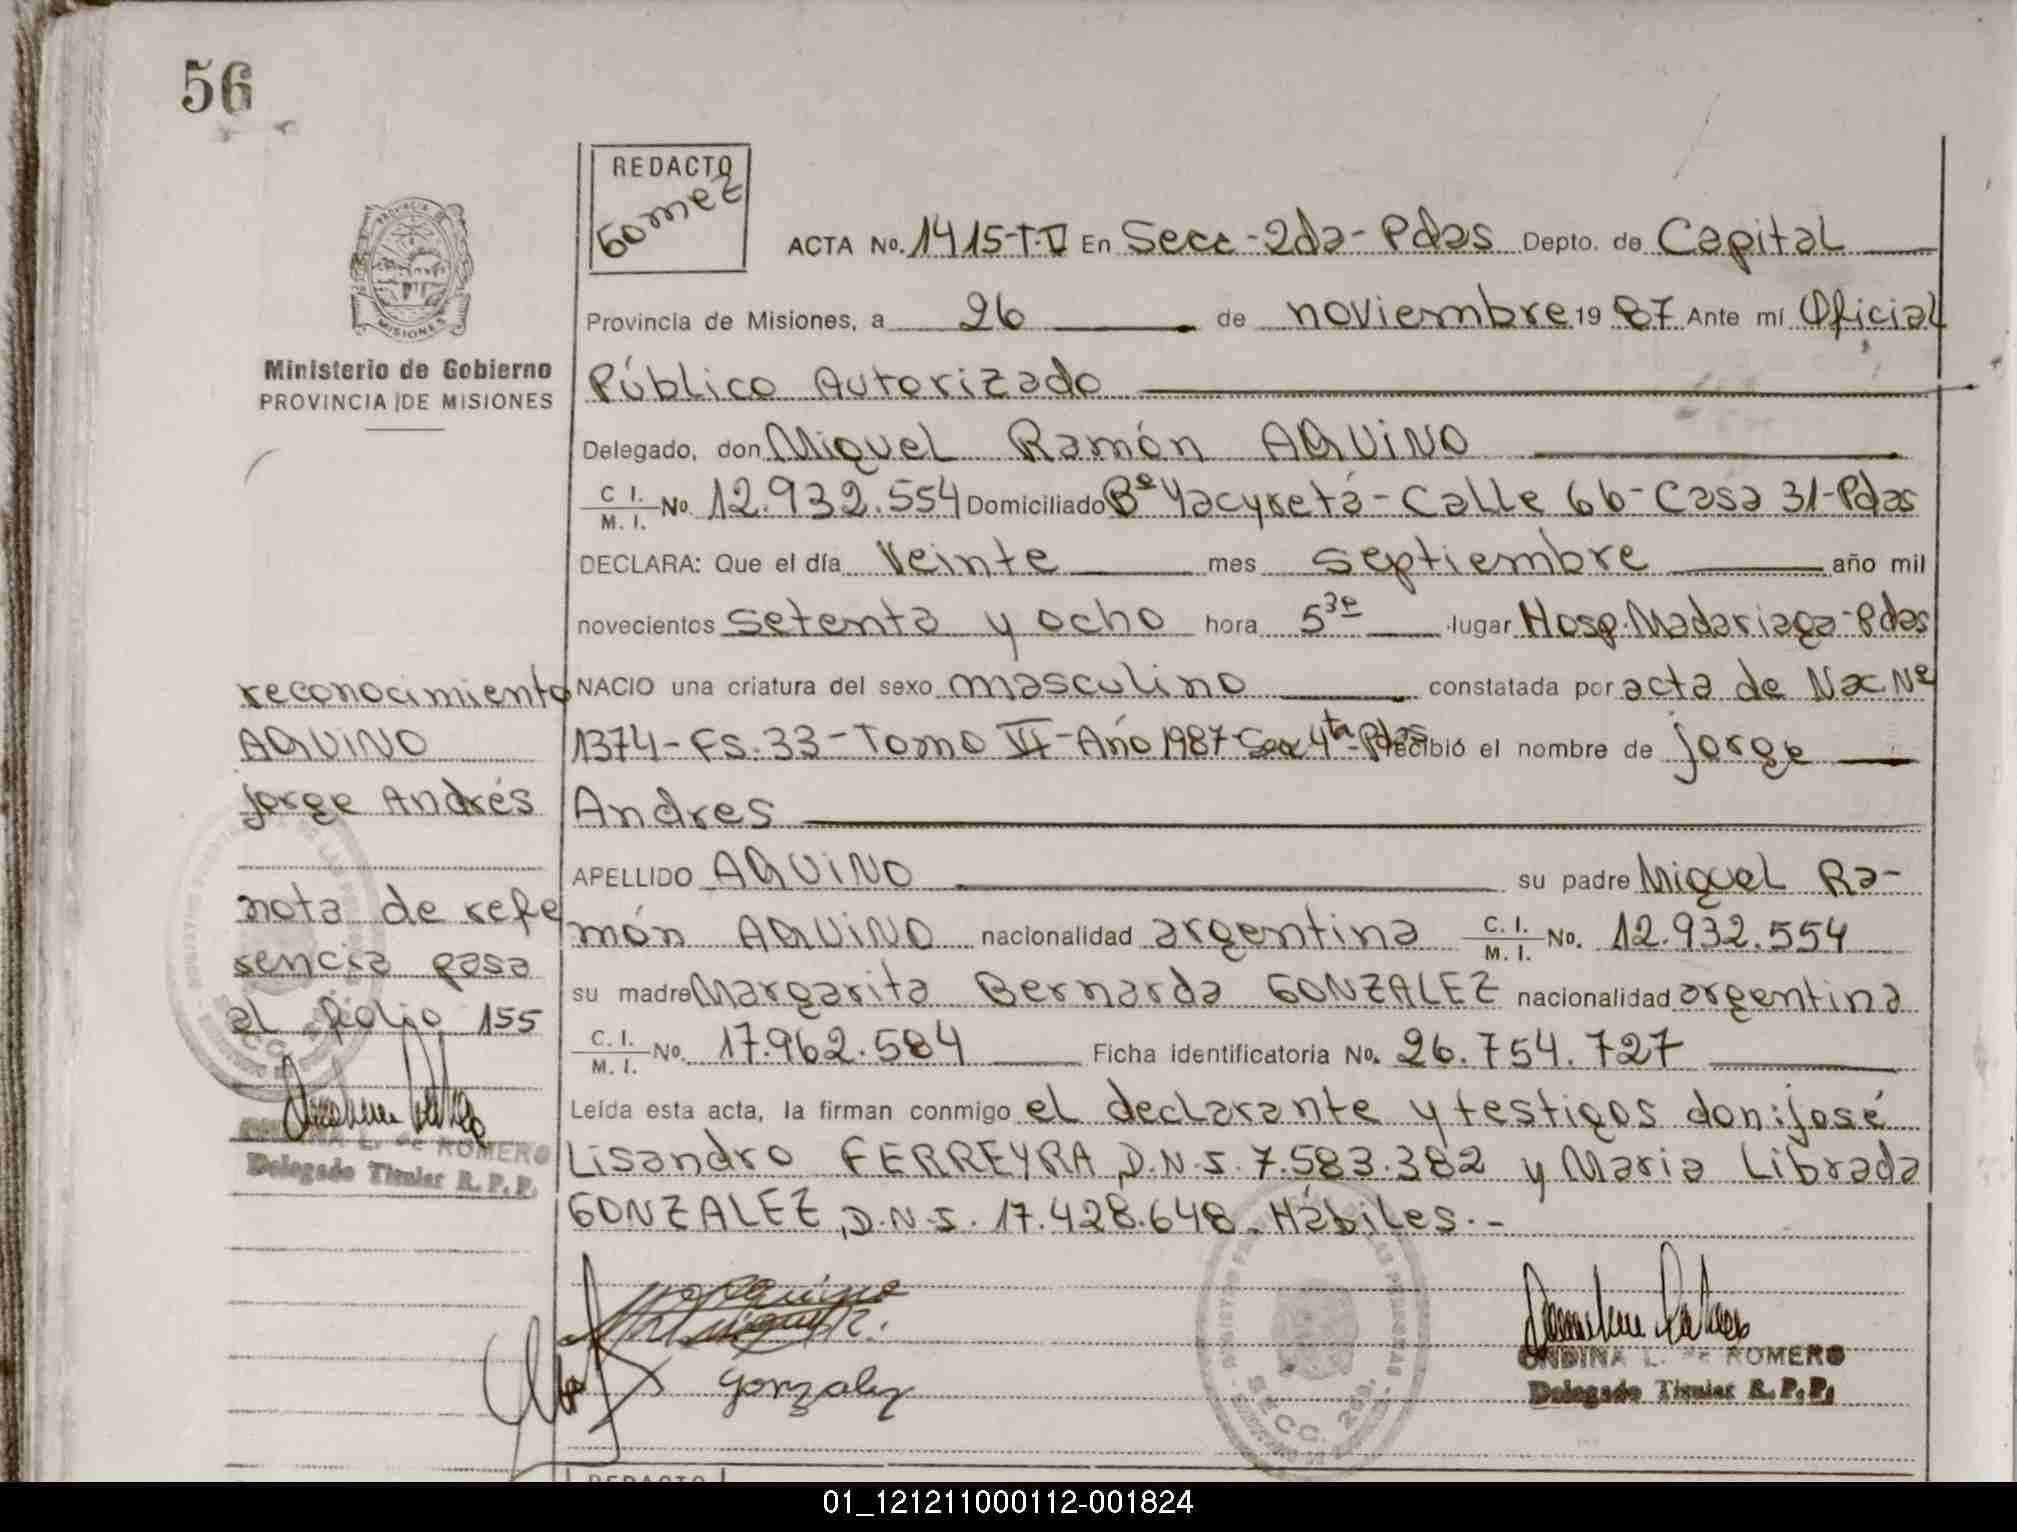 56
REDACTO
Gomez
ACTA No. 1415-T-V En Secc-2da-Pdas Depto. de Capital
PROVINCIA DE
MISIONES
Ministerio de Gobierno
PROVINCIA DE MISIONES
Provincia de Misiones, a 26 de noviembre 19 87 Ante mí Oficial
Público Autorizado
Delegado, don Miguel Ramón AQUINO
C I. M. I. No. 12.932.554 Domiciliado Bº Yacyretá-Calle 66-Casa 31-Pdas
DECLARA: Que el día Veinte mes septiembre año mil
novecientos setenta y ocho hora 5³⁰ lugar Hosp. Madariaga-Pdas
NACIO una criatura del sexo masculino constatada por acta de Nac Nº
1374-Fs. 33-Tomo VI-Año 1987-Secc 4ta-Pdas recibió el nombre de Jorge
Andres
APELLIDO AQUINO su padre Miguel Ra-
món AQUINO nacionalidad argentina C. I. M. I. No. 12.932.554
su madre Margarita Bernarda GONZALEZ nacionalidad argentina
C. I. M. I. No. 17.962.584 Ficha identificatoria No. 26.754.727
Leída esta acta, la firman conmigo el declarante y testigos don: José
Lisandro FERREYRA, D.N.I. 7.583.382 y Maria Librada
GONZALEZ, D.N.I. 17.428.648. Hábiles.-
reconocimiento
AQUINO
Jorge Andrés
nota de refe
rencia pasa
al folio 155
ONDINA L. de ROMERO
Delegado Titular R. P. P.
Gonzalez
SECC. 2da.
ONDINA L. de ROMERO
Delegado Titular R. P. P.
REDACTO
01_121211000112-001824